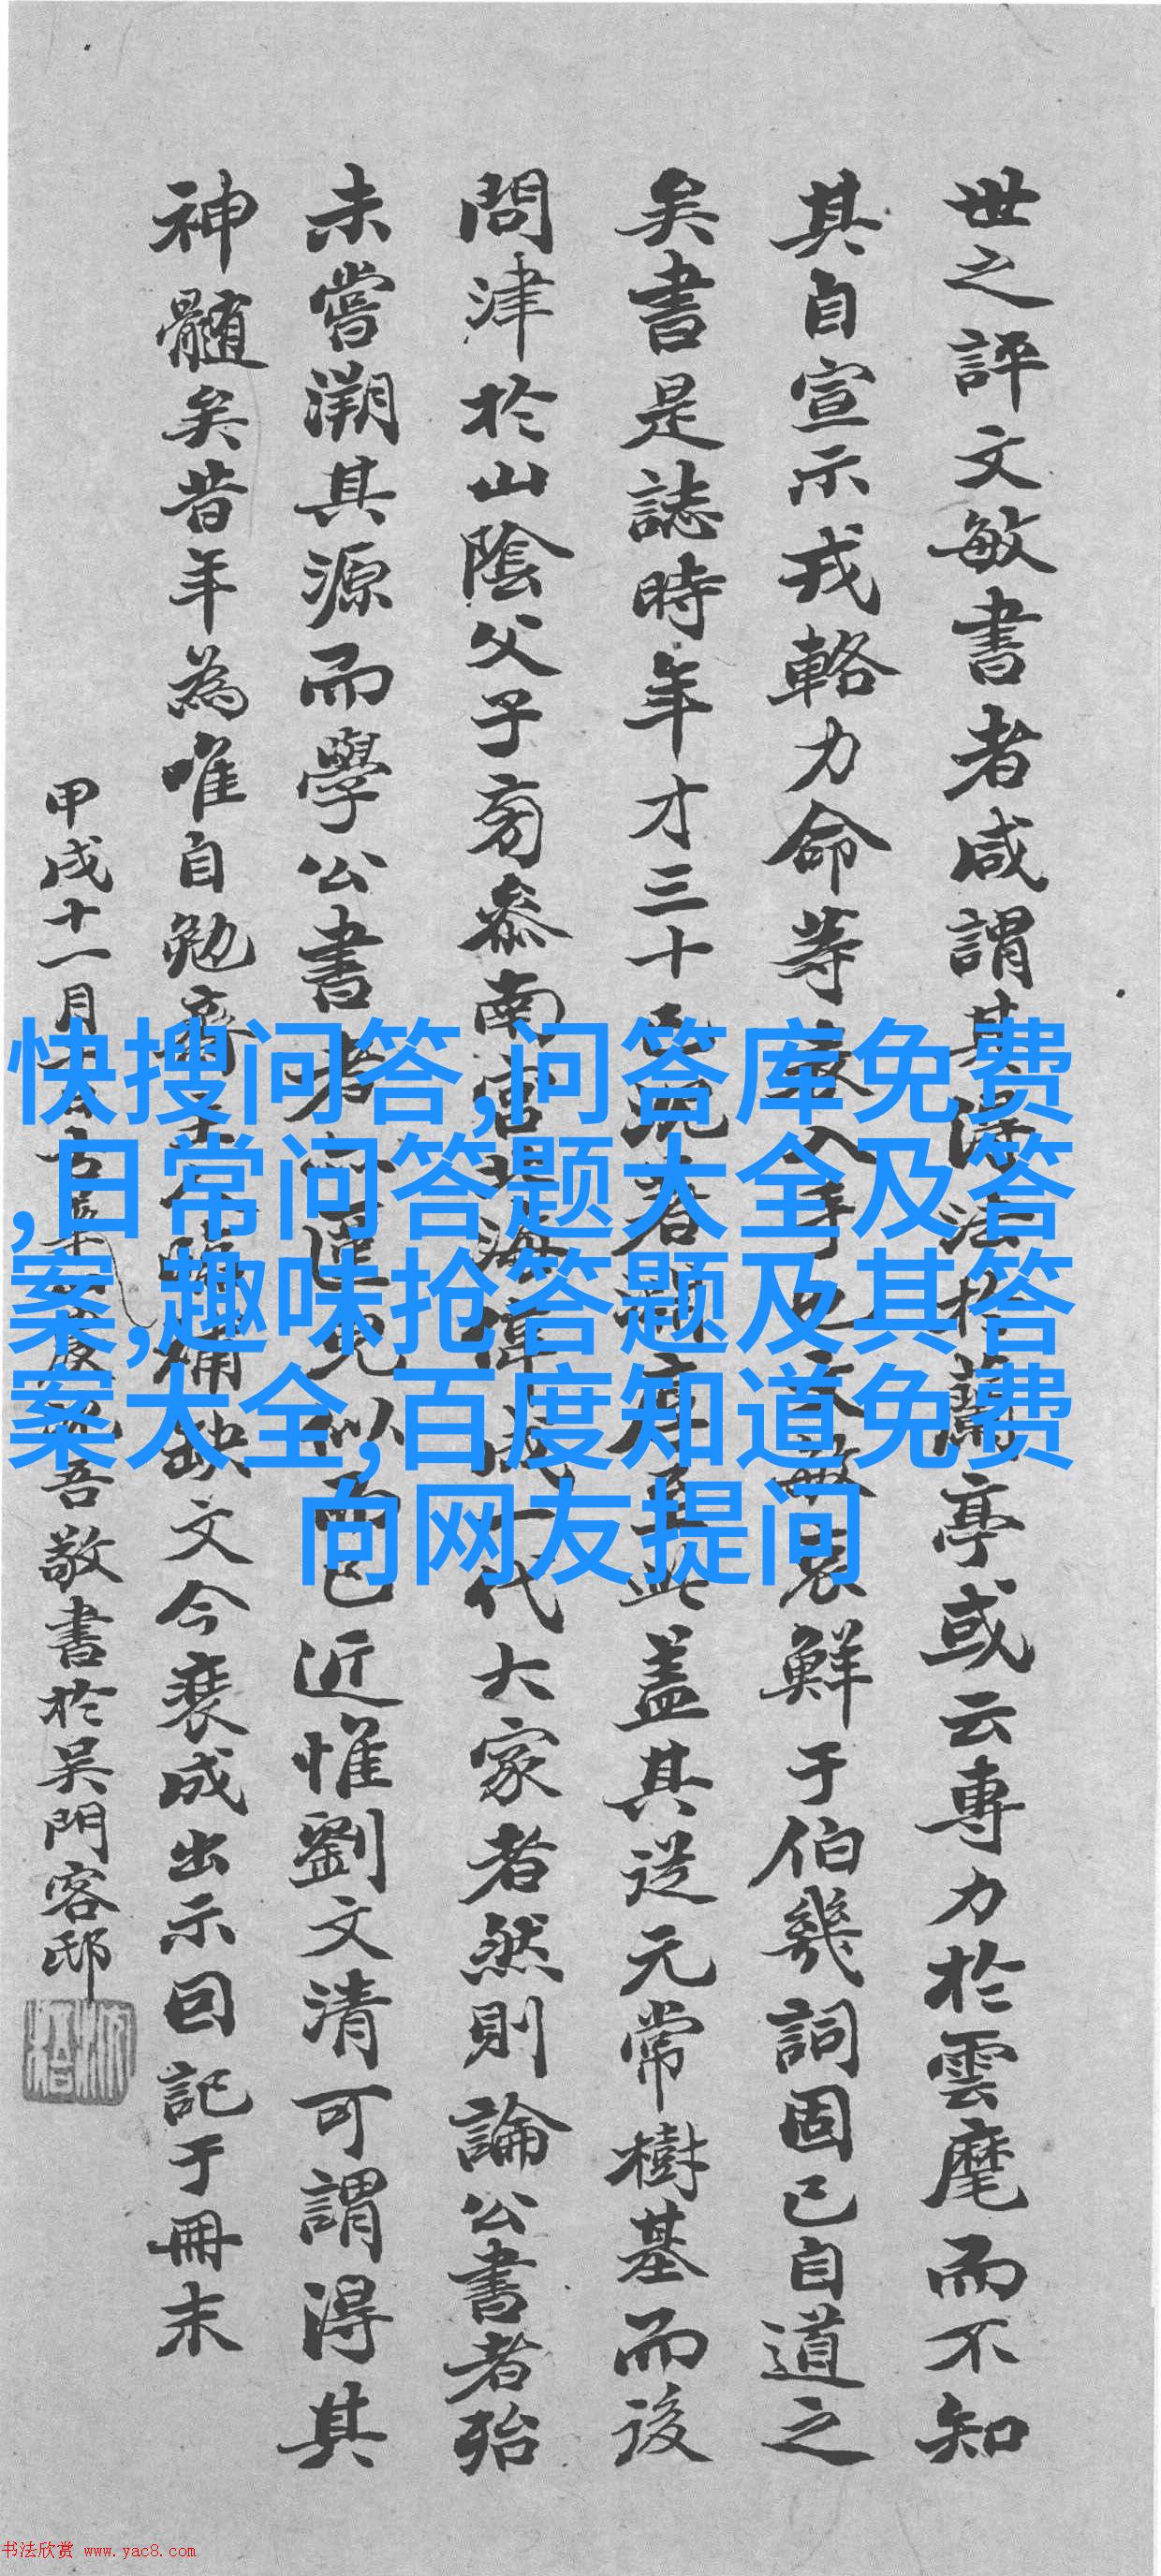 世之評文敏書者咸謂其得法於蘭亭或云專力於雲麾而不知
其自宣示戎輅力命等
鮮于伯幾詞固已自道之
矣書是誌時年才三十
蓋其從元常樹基而後
問津於山陰父子旁參南宮北海
代大家者然則論公書者殆
未嘗溯其源而學公書者
近惟劉文清可謂得其
神髓矣昔年為唯自勉齋
缺文今裝成出示回記于冊末
甲戌十一月
吾敬書於吴門客邸
快搜问答,问答库免费
,日常问答题大全及答
案,趣味抢答题及其答
案大全,百度知道免费
向网友提问
书法欣赏 www.yac8.com